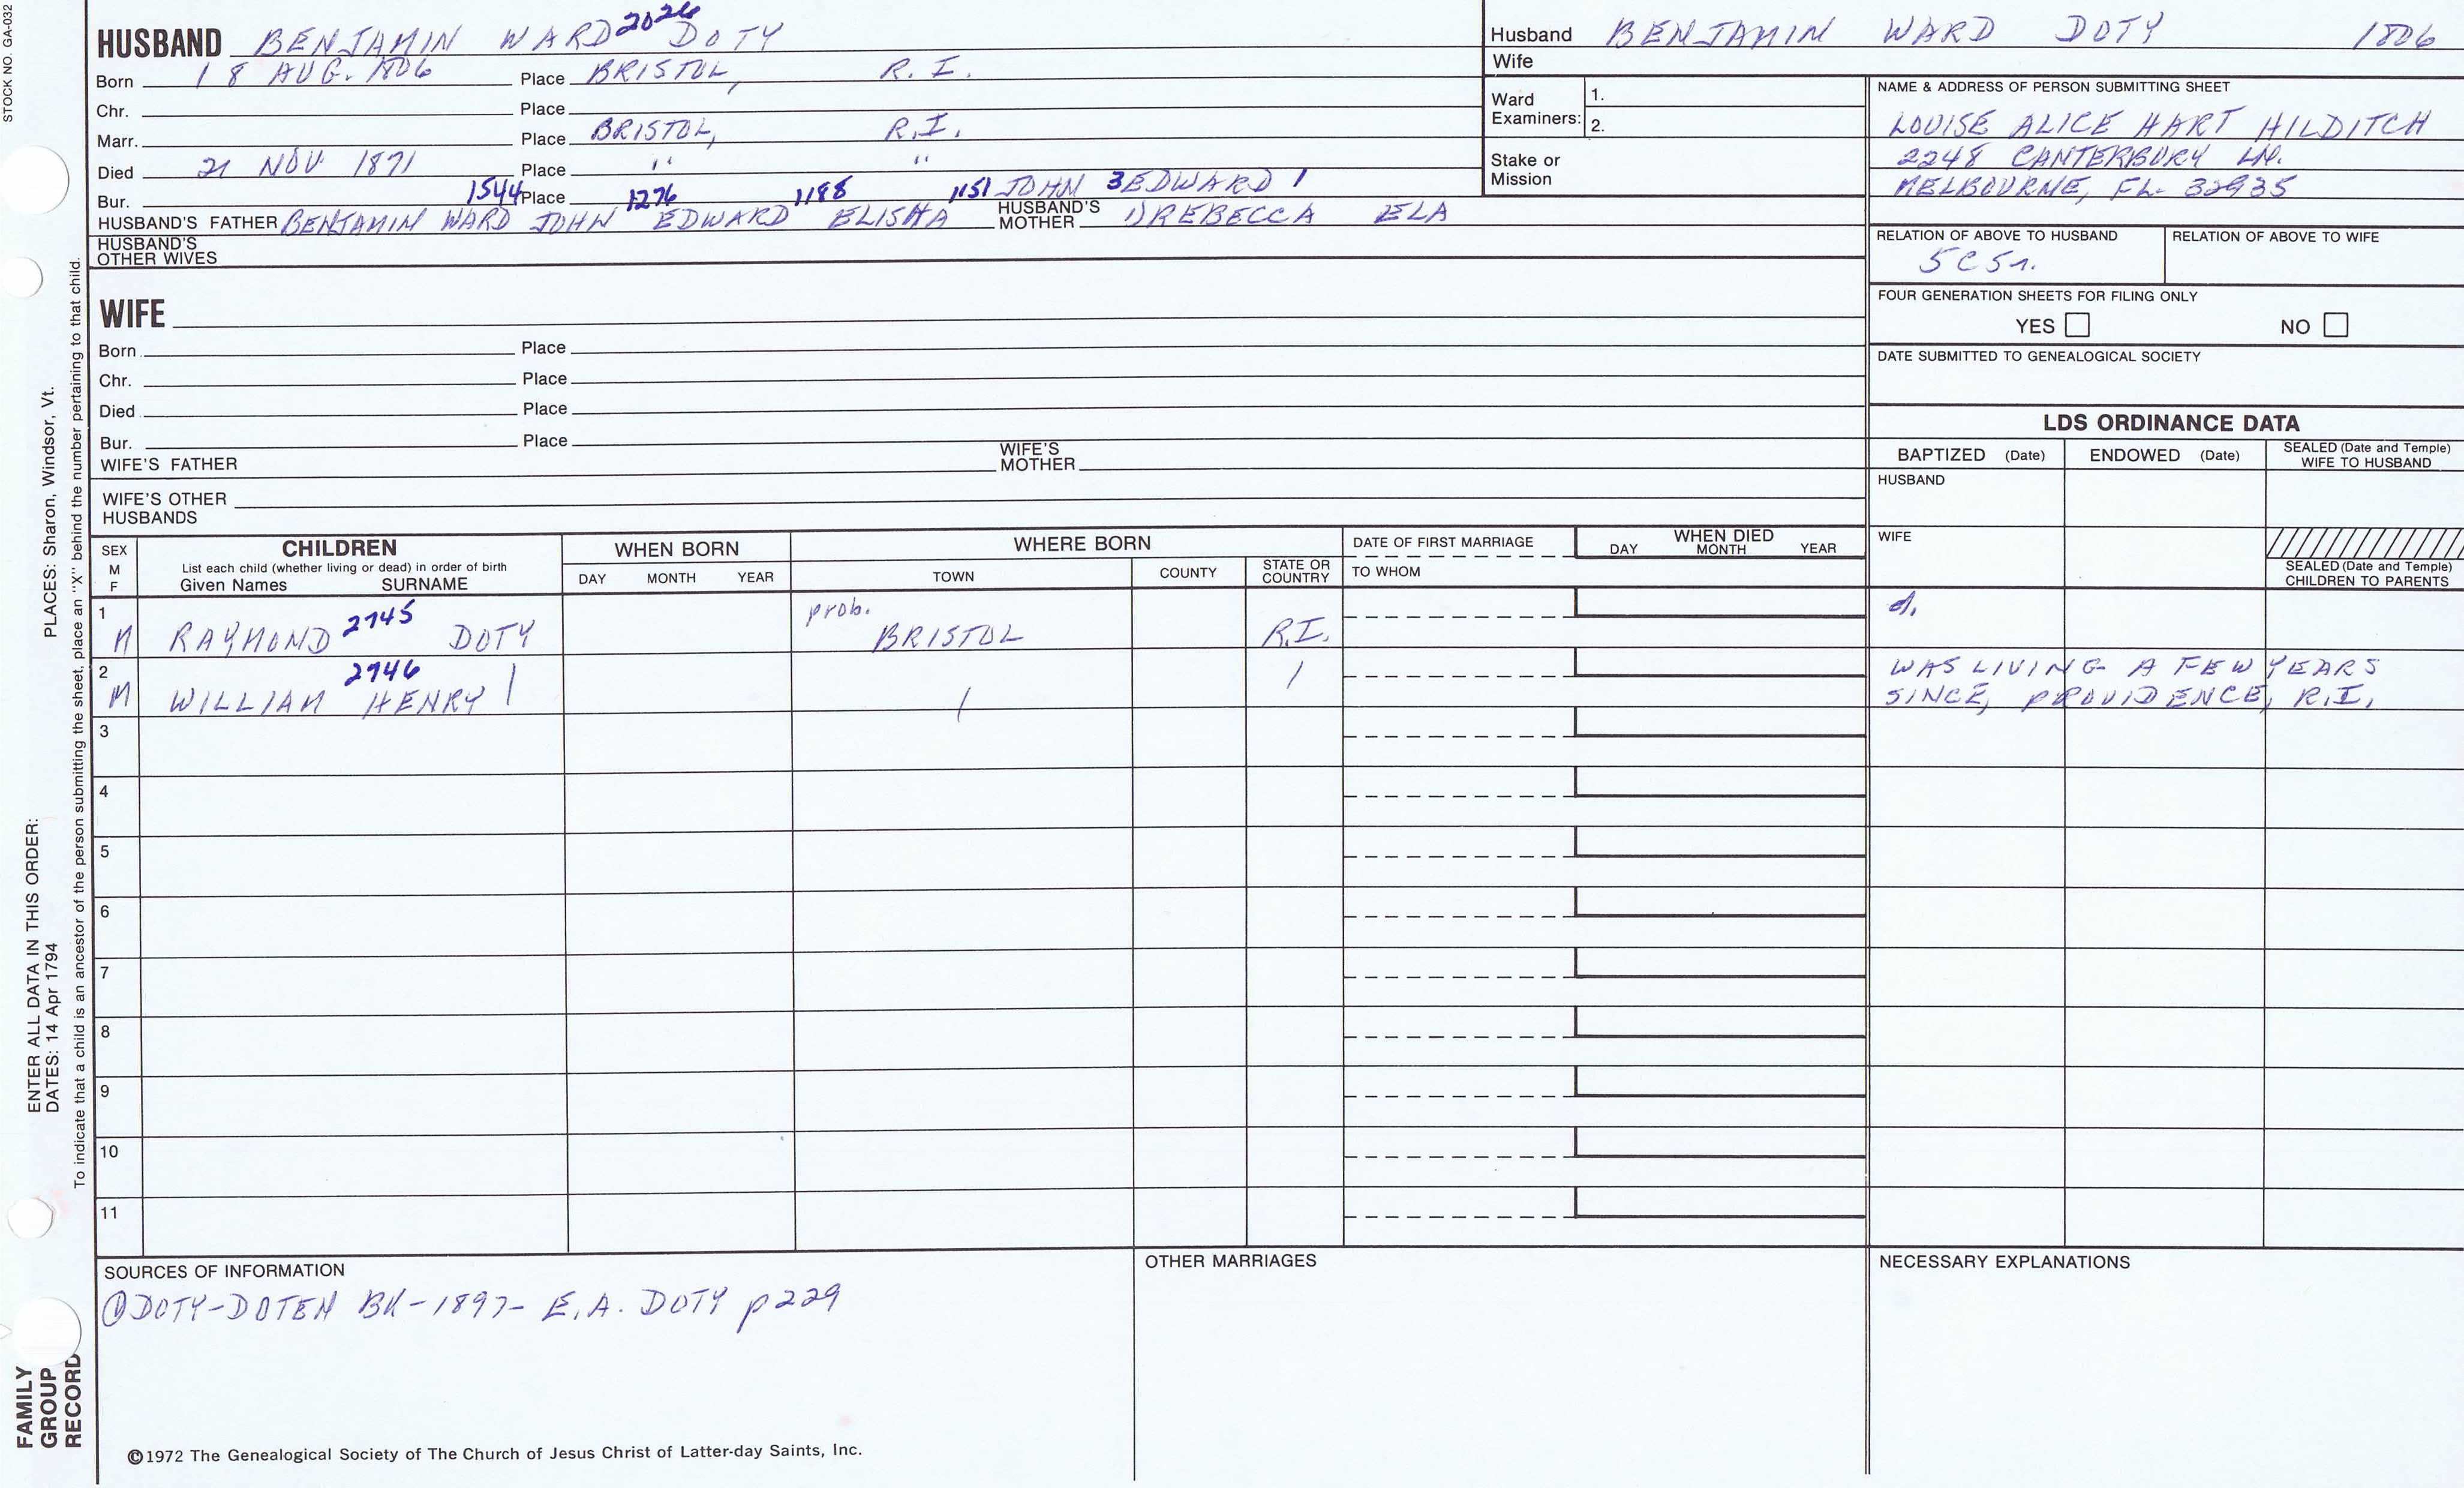 STOCK NO. GA-032
HUSBAND BENJAMIN WARD 2026 DOTY
Born 18 AUG. 1806 Place BRISTOL, R. I.
Chr. Place
Marr. Place BRISTOL, R.I.
Died 21 NOV 1871 Place " "
Bur. 1544 Place 1276 1188 1151 JOHN 3 EDWARD 1
HUSBAND'S FATHER BENJAMIN WARD JOHN EDWARD ELISHA HUSBAND'S MOTHER 1) REBECCA ELA
HUSBAND'S OTHER WIVES
WIFE
Born Place
Chr. Place
Died Place
Bur. Place
WIFE'S FATHER WIFE'S MOTHER
WIFE'S OTHER HUSBANDS
Husband BENJAMIN WARD DOTY 1806
Wife
Ward Examiners: 1.
2.
Stake or Mission
NAME & ADDRESS OF PERSON SUBMITTING SHEET
LOUISE ALICE HART HILDITCH
2248 CANTERBURY LN.
MELBOURNE, FL. 32935
RELATION OF ABOVE TO HUSBAND RELATION OF ABOVE TO WIFE
5C5r.
FOUR GENERATION SHEETS FOR FILING ONLY
YES NO
DATE SUBMITTED TO GENEALOGICAL SOCIETY
LDS ORDINANCE DATA
BAPTIZED (Date) ENDOWED (Date) SEALED (Date and Temple) WIFE TO HUSBAND
HUSBAND
WIFE
SEALED (Date and Temple) CHILDREN TO PARENTS
SEX M F
CHILDREN
List each child (whether living or dead) in order of birth
Given Names SURNAME
WHEN BORN
DAY MONTH YEAR
WHERE BORN
TOWN COUNTY STATE OR COUNTRY
DATE OF FIRST MARRIAGE
TO WHOM
WHEN DIED
DAY MONTH YEAR
1 M RAYMOND 2745 DOTY prob. BRISTOL R.I. d.
2 M WILLIAM HENRY 2746 WAS LIVING A FEW YEARS
SINCE, PROVIDENCE, R.I.
3
4
5
6
7
8
9
10
11
SOURCES OF INFORMATION
① DOTY-DOTEN BK-1897- E.A. DOTY p229
OTHER MARRIAGES
NECESSARY EXPLANATIONS
©1972 The Genealogical Society of The Church of Jesus Christ of Latter-day Saints, Inc.
FAMILY GROUP RECORD
ENTER ALL DATA IN THIS ORDER:
DATES: 14 Apr 1794 PLACES: Sharon, Windsor, Vt.
To indicate that a child is an ancestor of the person submitting the sheet, place an "X" behind the number pertaining to that child.